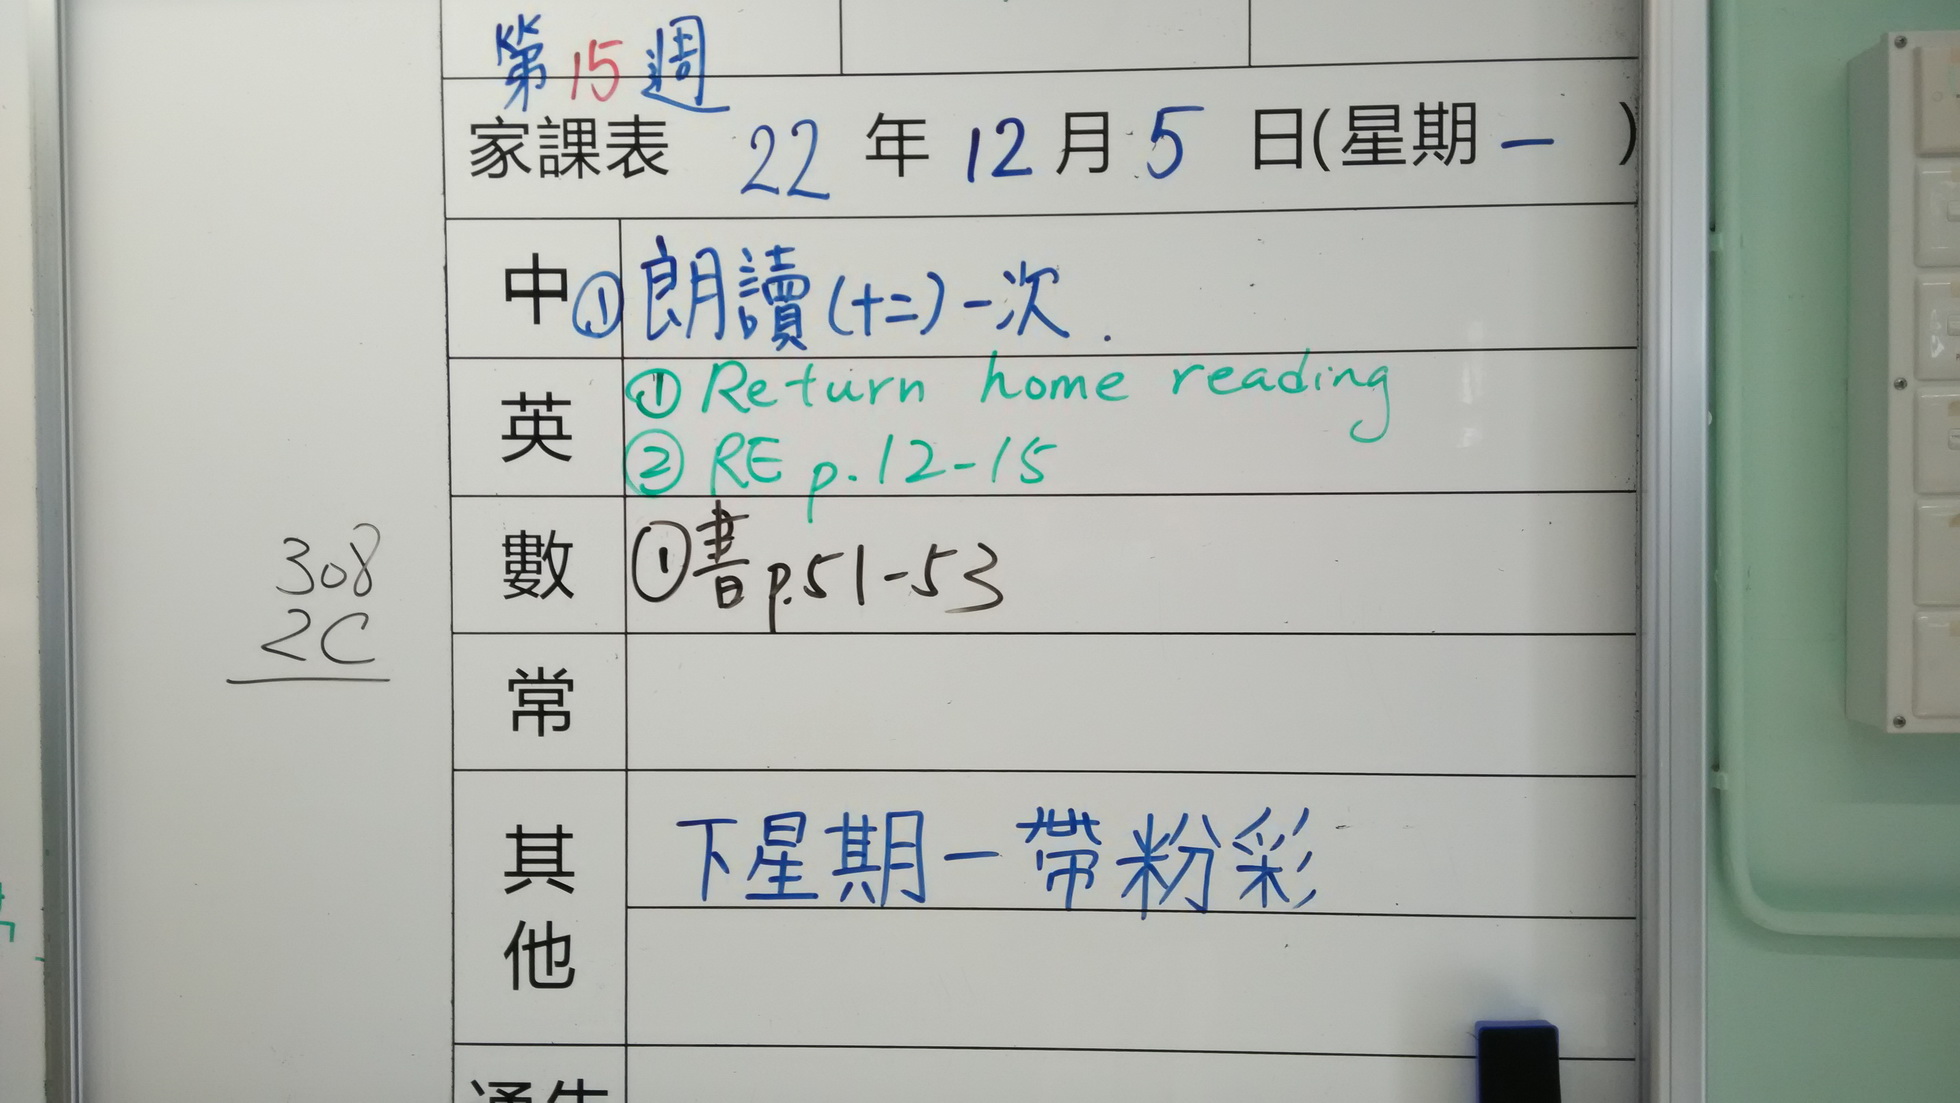 第15週
家課表 22年12月5日(星期一)
中 ①朗讀(十二)一次.
英 ①Return home reading
②RE p.12-15
數 ①書p.51-53
308
2C
常
其他 下星期一帶粉彩
通告